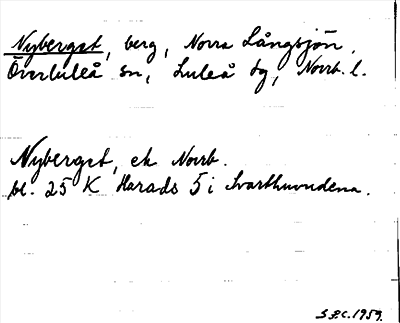 Nyberget, berg, Norra Långsjön.
Överluleå sn, Luleå tg, Norrb. l.
Nyberget, ek Norrb.
bl. 25 K Harads 5 i Svarthuvudena.
S.P.C. 1959.